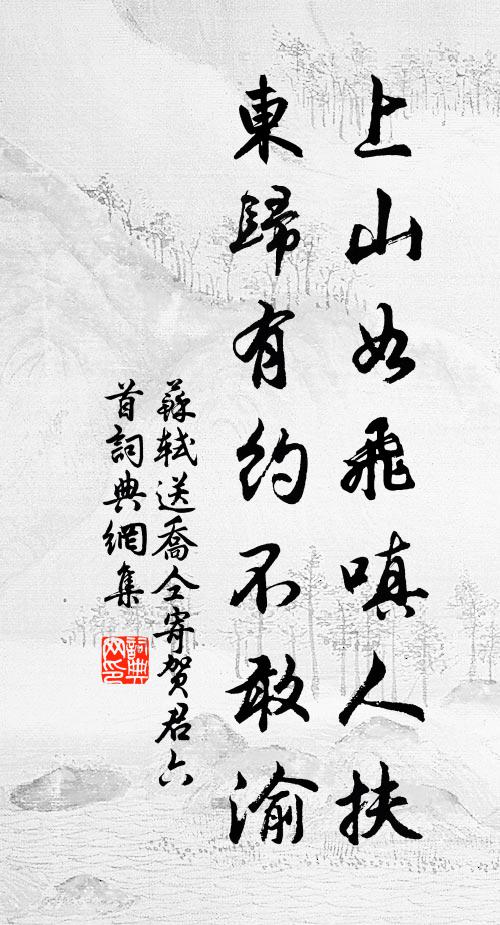 上山如飛嗔人扶
東歸有約不敢渝
蘇軾送喬仝寄賀君六
首詞典網集
詞典网印